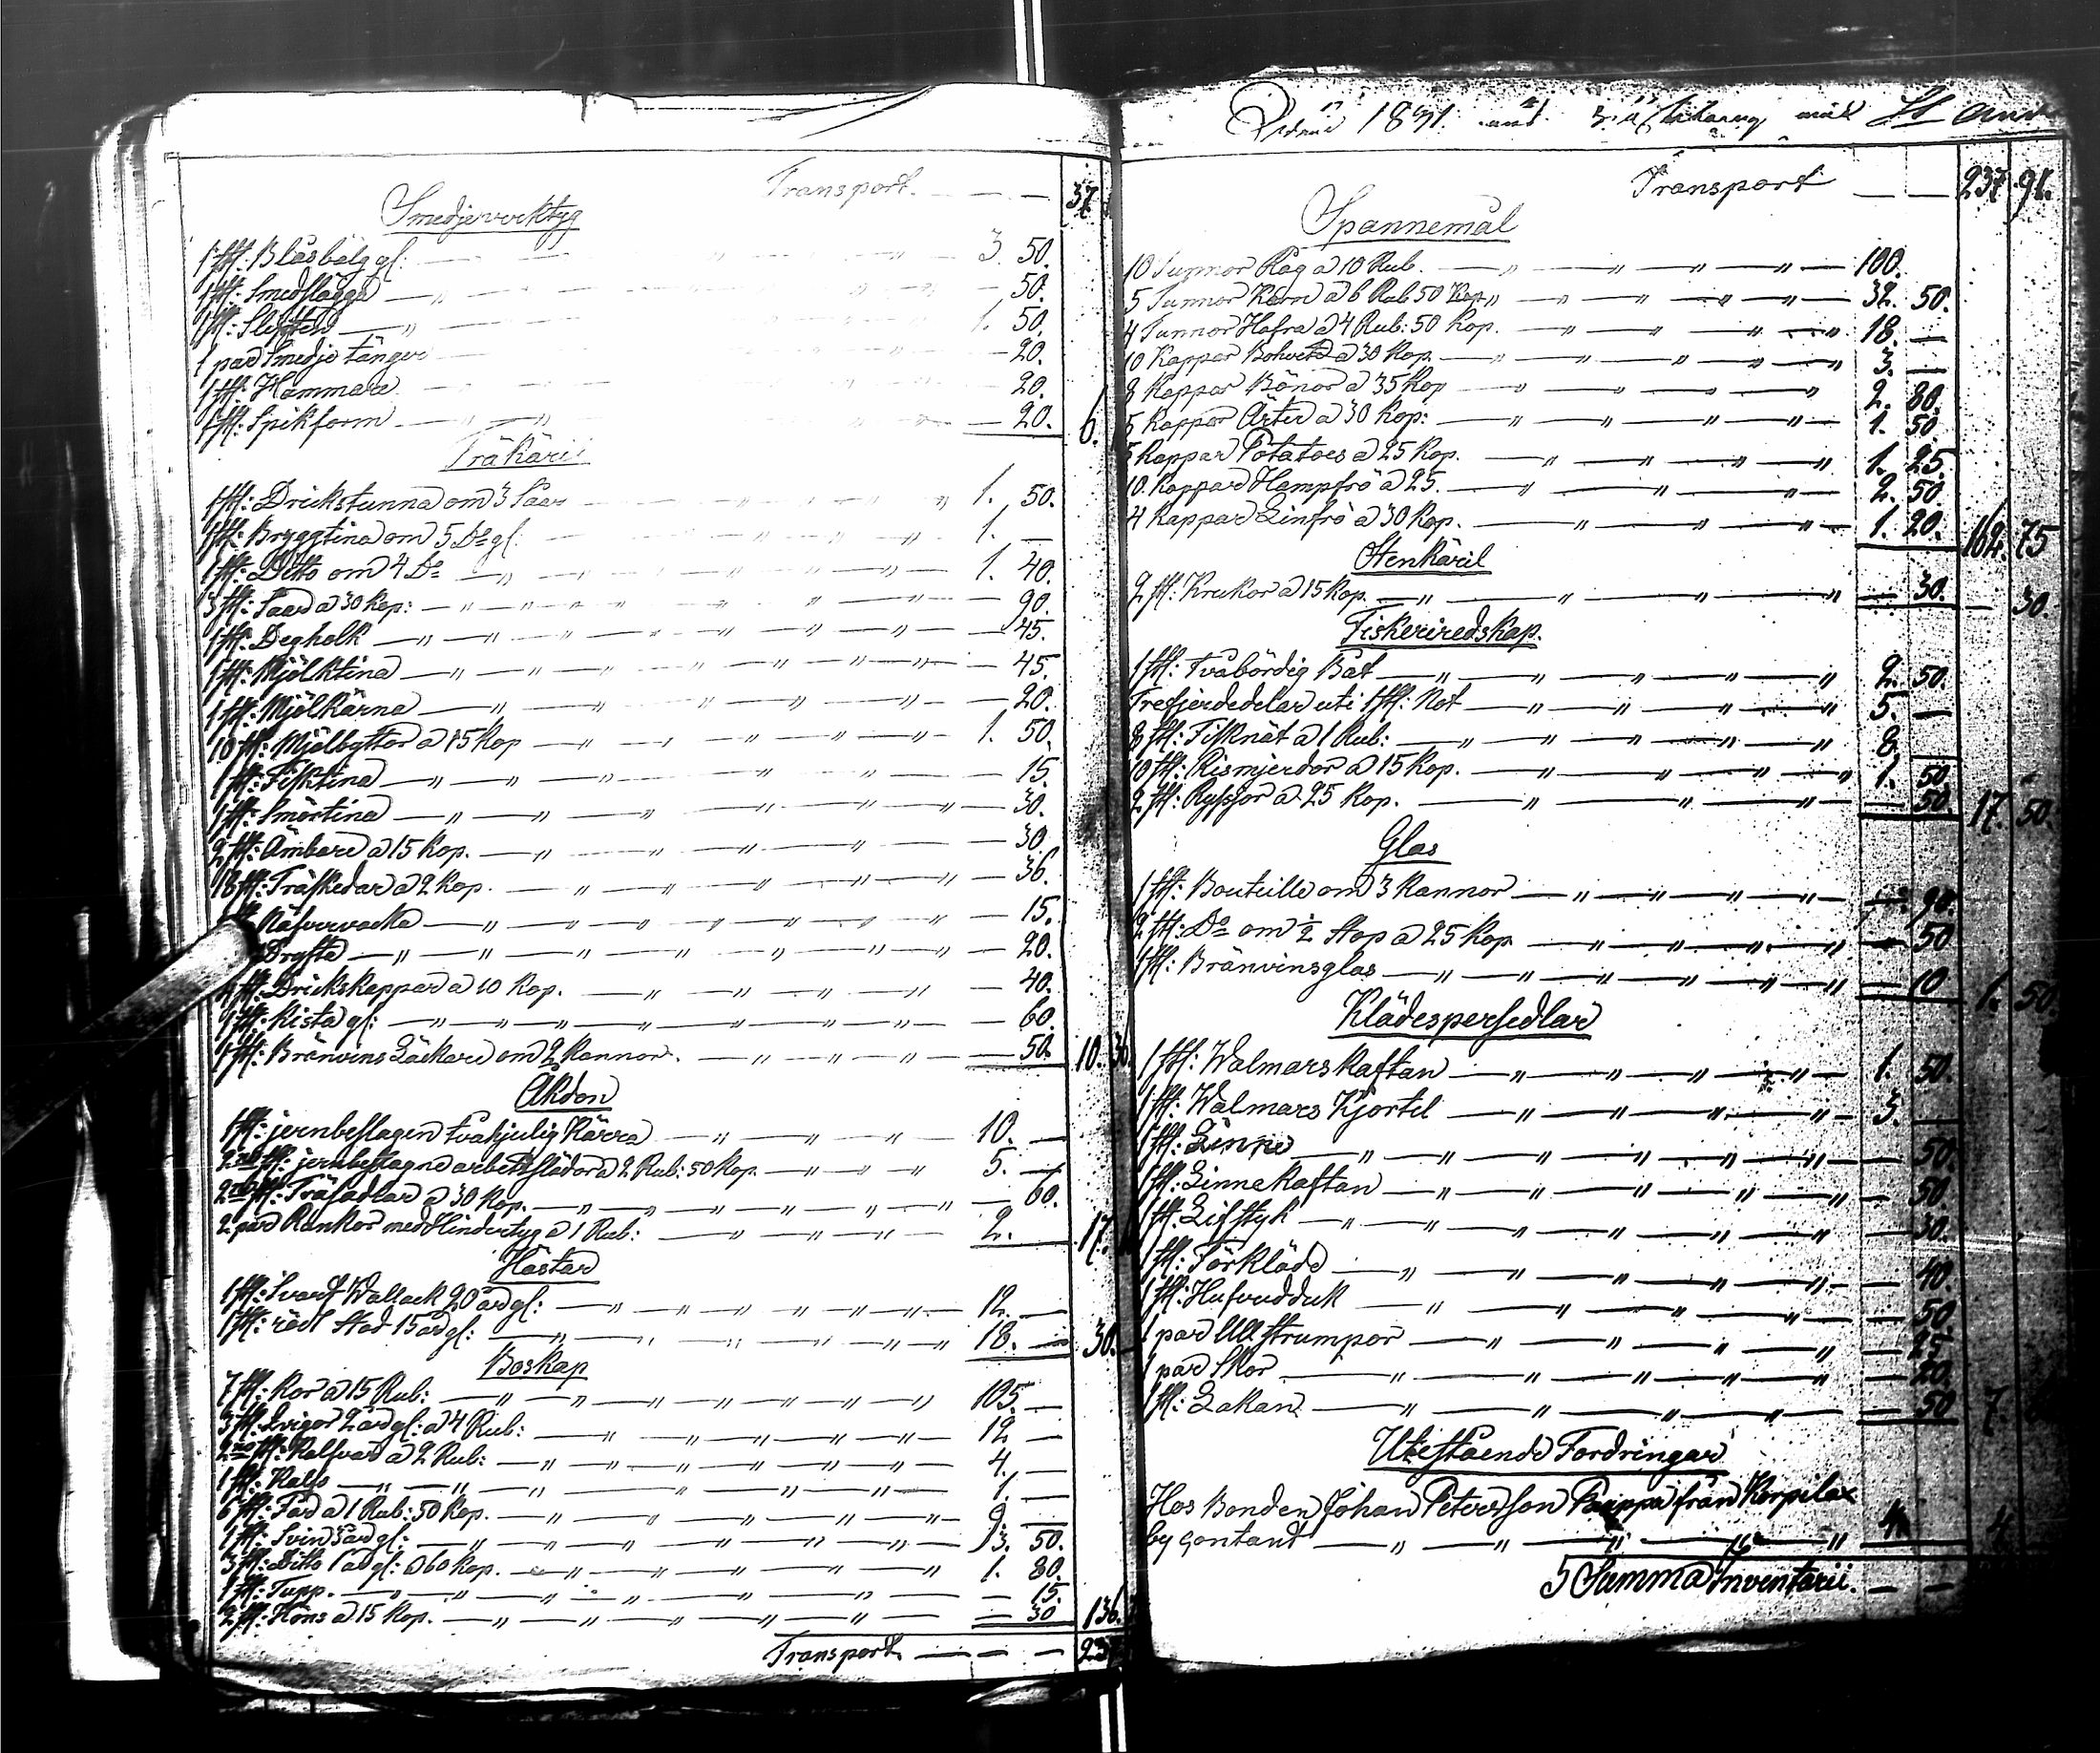 Transport. — — 37
Smedjeverktyg
1 st: Blåsbälg gl: — „ 3. 50.
1 st: Smedslägga — „ — 50.
1 st: Slipsten — „ 1. 50.
1 par Smedje tänger — 20.
1 st: Hammare — 20.
1 st: Spikform — „ — 20. 6.
Träkäril
1 st: Drickstunna om 3 Såar „ 1. 50.
1 st: Bryggtina om 5 Do gl: „ 1. —
1 st: Ditto om 4 Do — „ 1. 40.
3 st: Såar a 30 Kop: — „ — 90.
1 st: Degholk — „ — 45.
1 st: Mjölktina — „ — 45.
1 st: Mjölkärna — „ — 20.
10 st: Mjölbyttor a 15 Kop — „ 1. 50.
1 st: Fisktina — „ — 15.
1 st: Smörtina — „ — 30.
2 st: Ämbare a 15 Kop. — „ — 30.
18 st: Träskedar a 2 Kop. — „ — 36.
Näfvervacka — „ — 15.
Dryfta — „ — 20.
4 st: Drickskappar a 10 Kop. — „ — 40.
1 st: Kista gl: — „ — 60.
1 st: Bränvins Läckare om 2 Kannor. — „ — 50. 10. 36
Åkdon
1 st: jernbeslagen tvåhjulig Kärra — „ 10. —
2ne st: jernbeslagne arbetsslädor a 2 Rub: 50 Kop. — „ 5. —
2ne st: Träsadlar a 30 Kop. — „ — 60.
2 par Rankor med Hindertyg a 1 Rub: — „ 2. 17.
Hästar
1 st: Svart Wallack 20 år gl: — „ 12. —
1 st: röd Stod 15 år gl: — „ 18. — 30.
Boskap
7 st: Kor a 15 Rub: — „ 105. —
3 st: Qvigor 2 år gl: a 4 Rub: — „ 12 —
2ne st: Kalfvar a 2 Rub: — „ 4. —
1 st: Kalf — „ 1. —
6 st: Får a 1 Rub: 50 Kop. — „ 9. —
1 st: Svin 3 år gl: — „ 3. 50.
3 st: Ditto 1 år gl: a 60 Kop. — „ 1. 80.
1 st: Tupp. — „ — 15.
2 st: Höns a 15 Kop. — „ — 30 136.
Transport. — — 237
1841
Transport — — 237. 91.
Spannemål
10 Tunnor Råg a 10 Rub. — „ 100.
5 Tunnor Korn a 6 Rub 50 Kop „ 32. 50.
4 Tunnor Hafra a 4 Rub: 50 Kop. — „ 18. —
10 Kappar Bohvete a 30 Kop. — „ 3. —
8 Kappar Bönor a 35 Kop — „ 2. 80.
5 Kappar Ärter a 30 Kop: — „ 1. 50
5 Kappar Potatoes a 25 Kop. — „ 1. 25.
10. Kappar Hampfrö a 25. — „ 2. 50
4 Kappar Linfrö a 30 Kop. — „ 1. 20. 162. 75
Stenkäril
2 st: Krukor a 15 Kop. — „ — 30. — 30.
Fiskeriredskap.
1 st: Tvåbördig Båt — „ 2. 50.
Trefjerdedelar uti 1 st: Not — „ 5. —
8 st: Fisknät a 1 Rub: — „ 8. —
10 st: Rismjerdor a 15 Kop. — „ 1. 50
2 st: Ryssjor a 25 Kop. — „ — 50. 17. 50.
Glas
1 st: Bouteille om 3 Kannor — „ — 90.
2 st: Do om ½ Stop a 25 Kop — „ — 50
1 st: Bränvinsglas — „ — 10 1. 50.
Klädespersedlar
1 st: Walmars Kaftan — „ 1. 50.
1 st: Walmars Kjortel — „ 3. —
1 st: — „ — 50.
1 st: Linne Kaftan — „ — 50.
1 st: Lifstyk — „ — 30.
1 st: Förkläde — „ — 40.
1 st: Hufvudduk — „ — 50
1 par Ull strumpor — „ — 25
1 par Skor — „ — 20.
1 st: Lakan — „ — 50 7.
Utestående Fordringar
Hos Bonden Johan Petersson från Korpilax
by contant — „ 4. — 4.
Summa Inventarii. — —